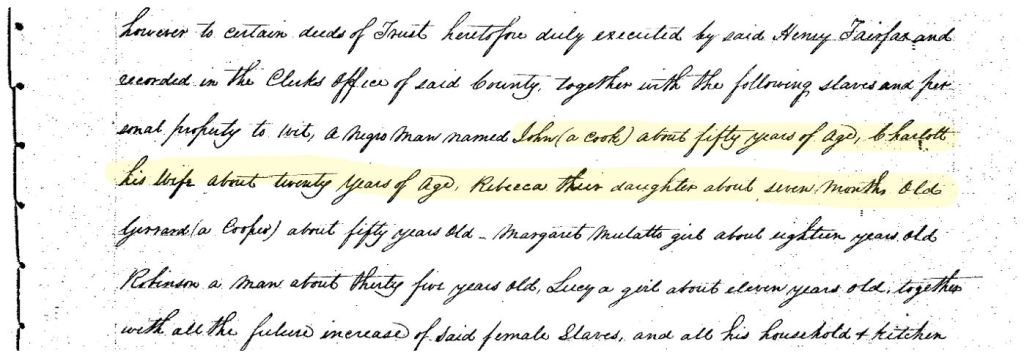 however to certain deeds of Trust heretofore duly executed by said Henry Fairfax and
recorded in the Clerks Office of said County, together with the following slaves and per
sonal property to wit, a negro man named John (a Cook) about fifty years of age, Charlott
his wife about twenty years of age, Rebecca their daughter about seven months old
Gerrard (a Cooper) about fifty years old - Margaret Mulatto girl about eighteen years old
Robinson a man about thirty five years old, Lucy a girl about eleven years old, together
with all the future increase of said female slaves, and all his household & kitchen